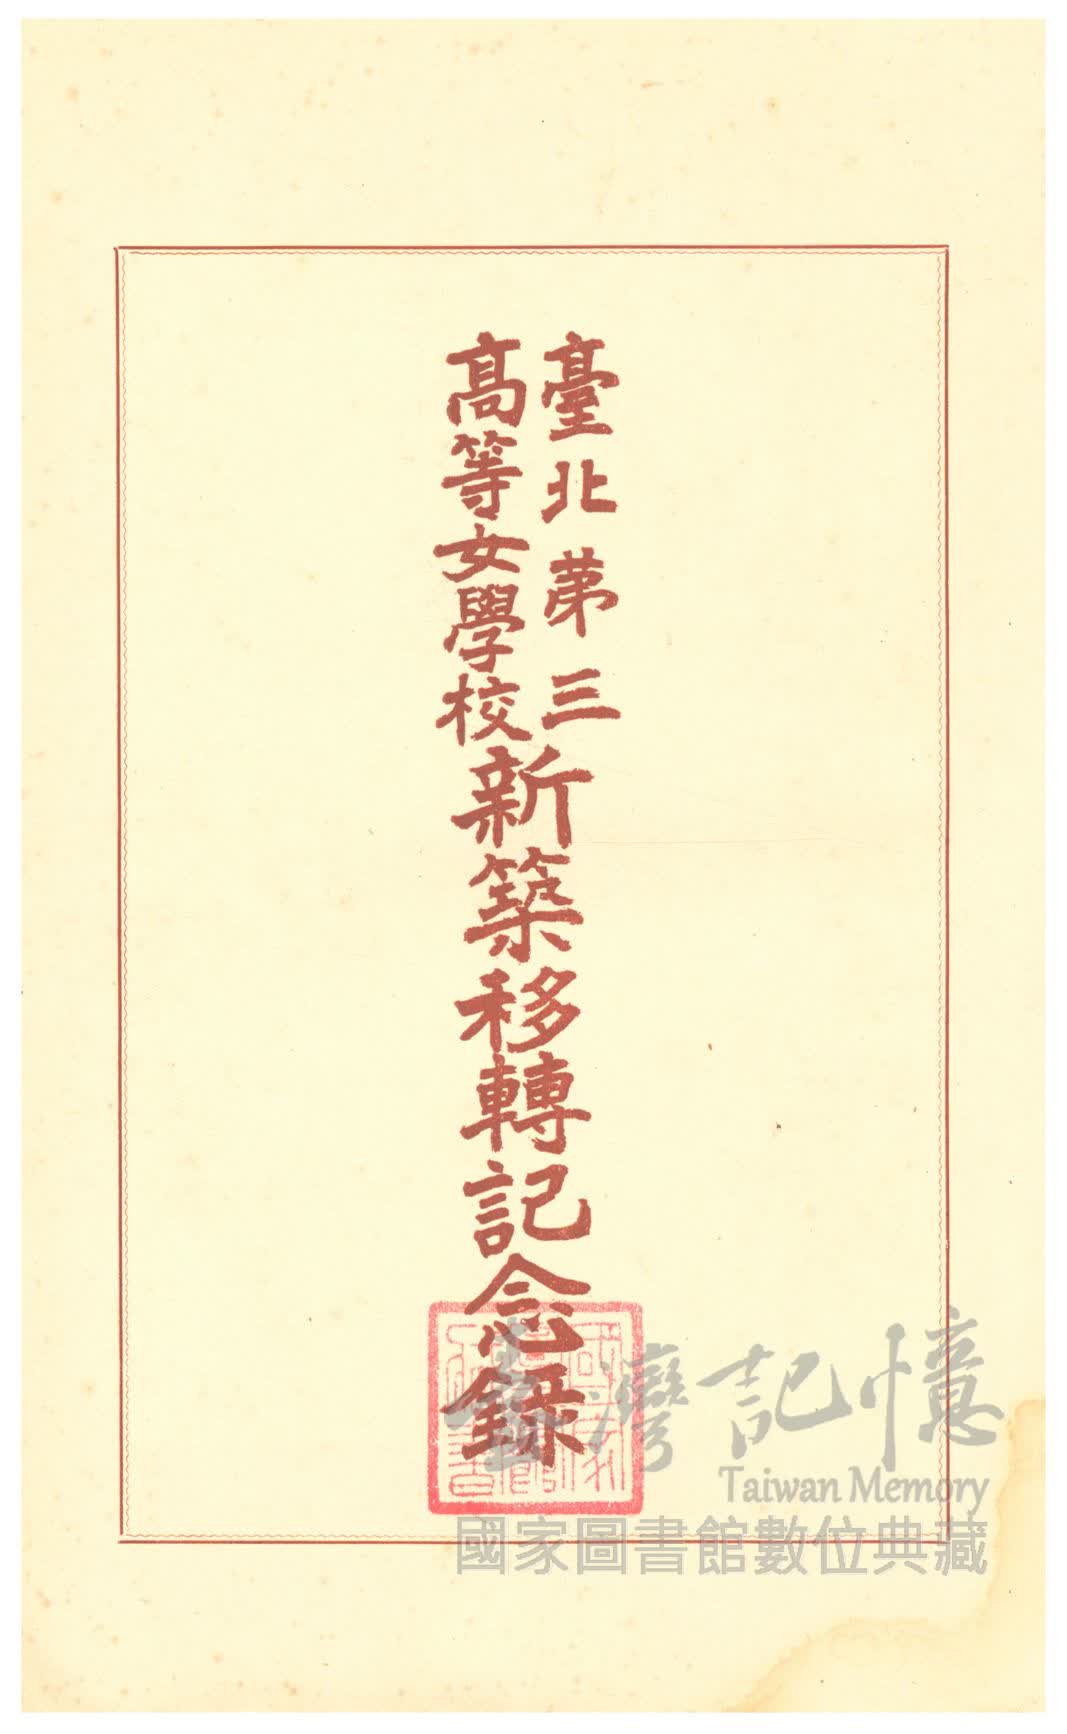 臺北第三
高等女學校
新築移轉記念錄
臺灣記憶
Taiwan Memory
國家圖書館數位典藏